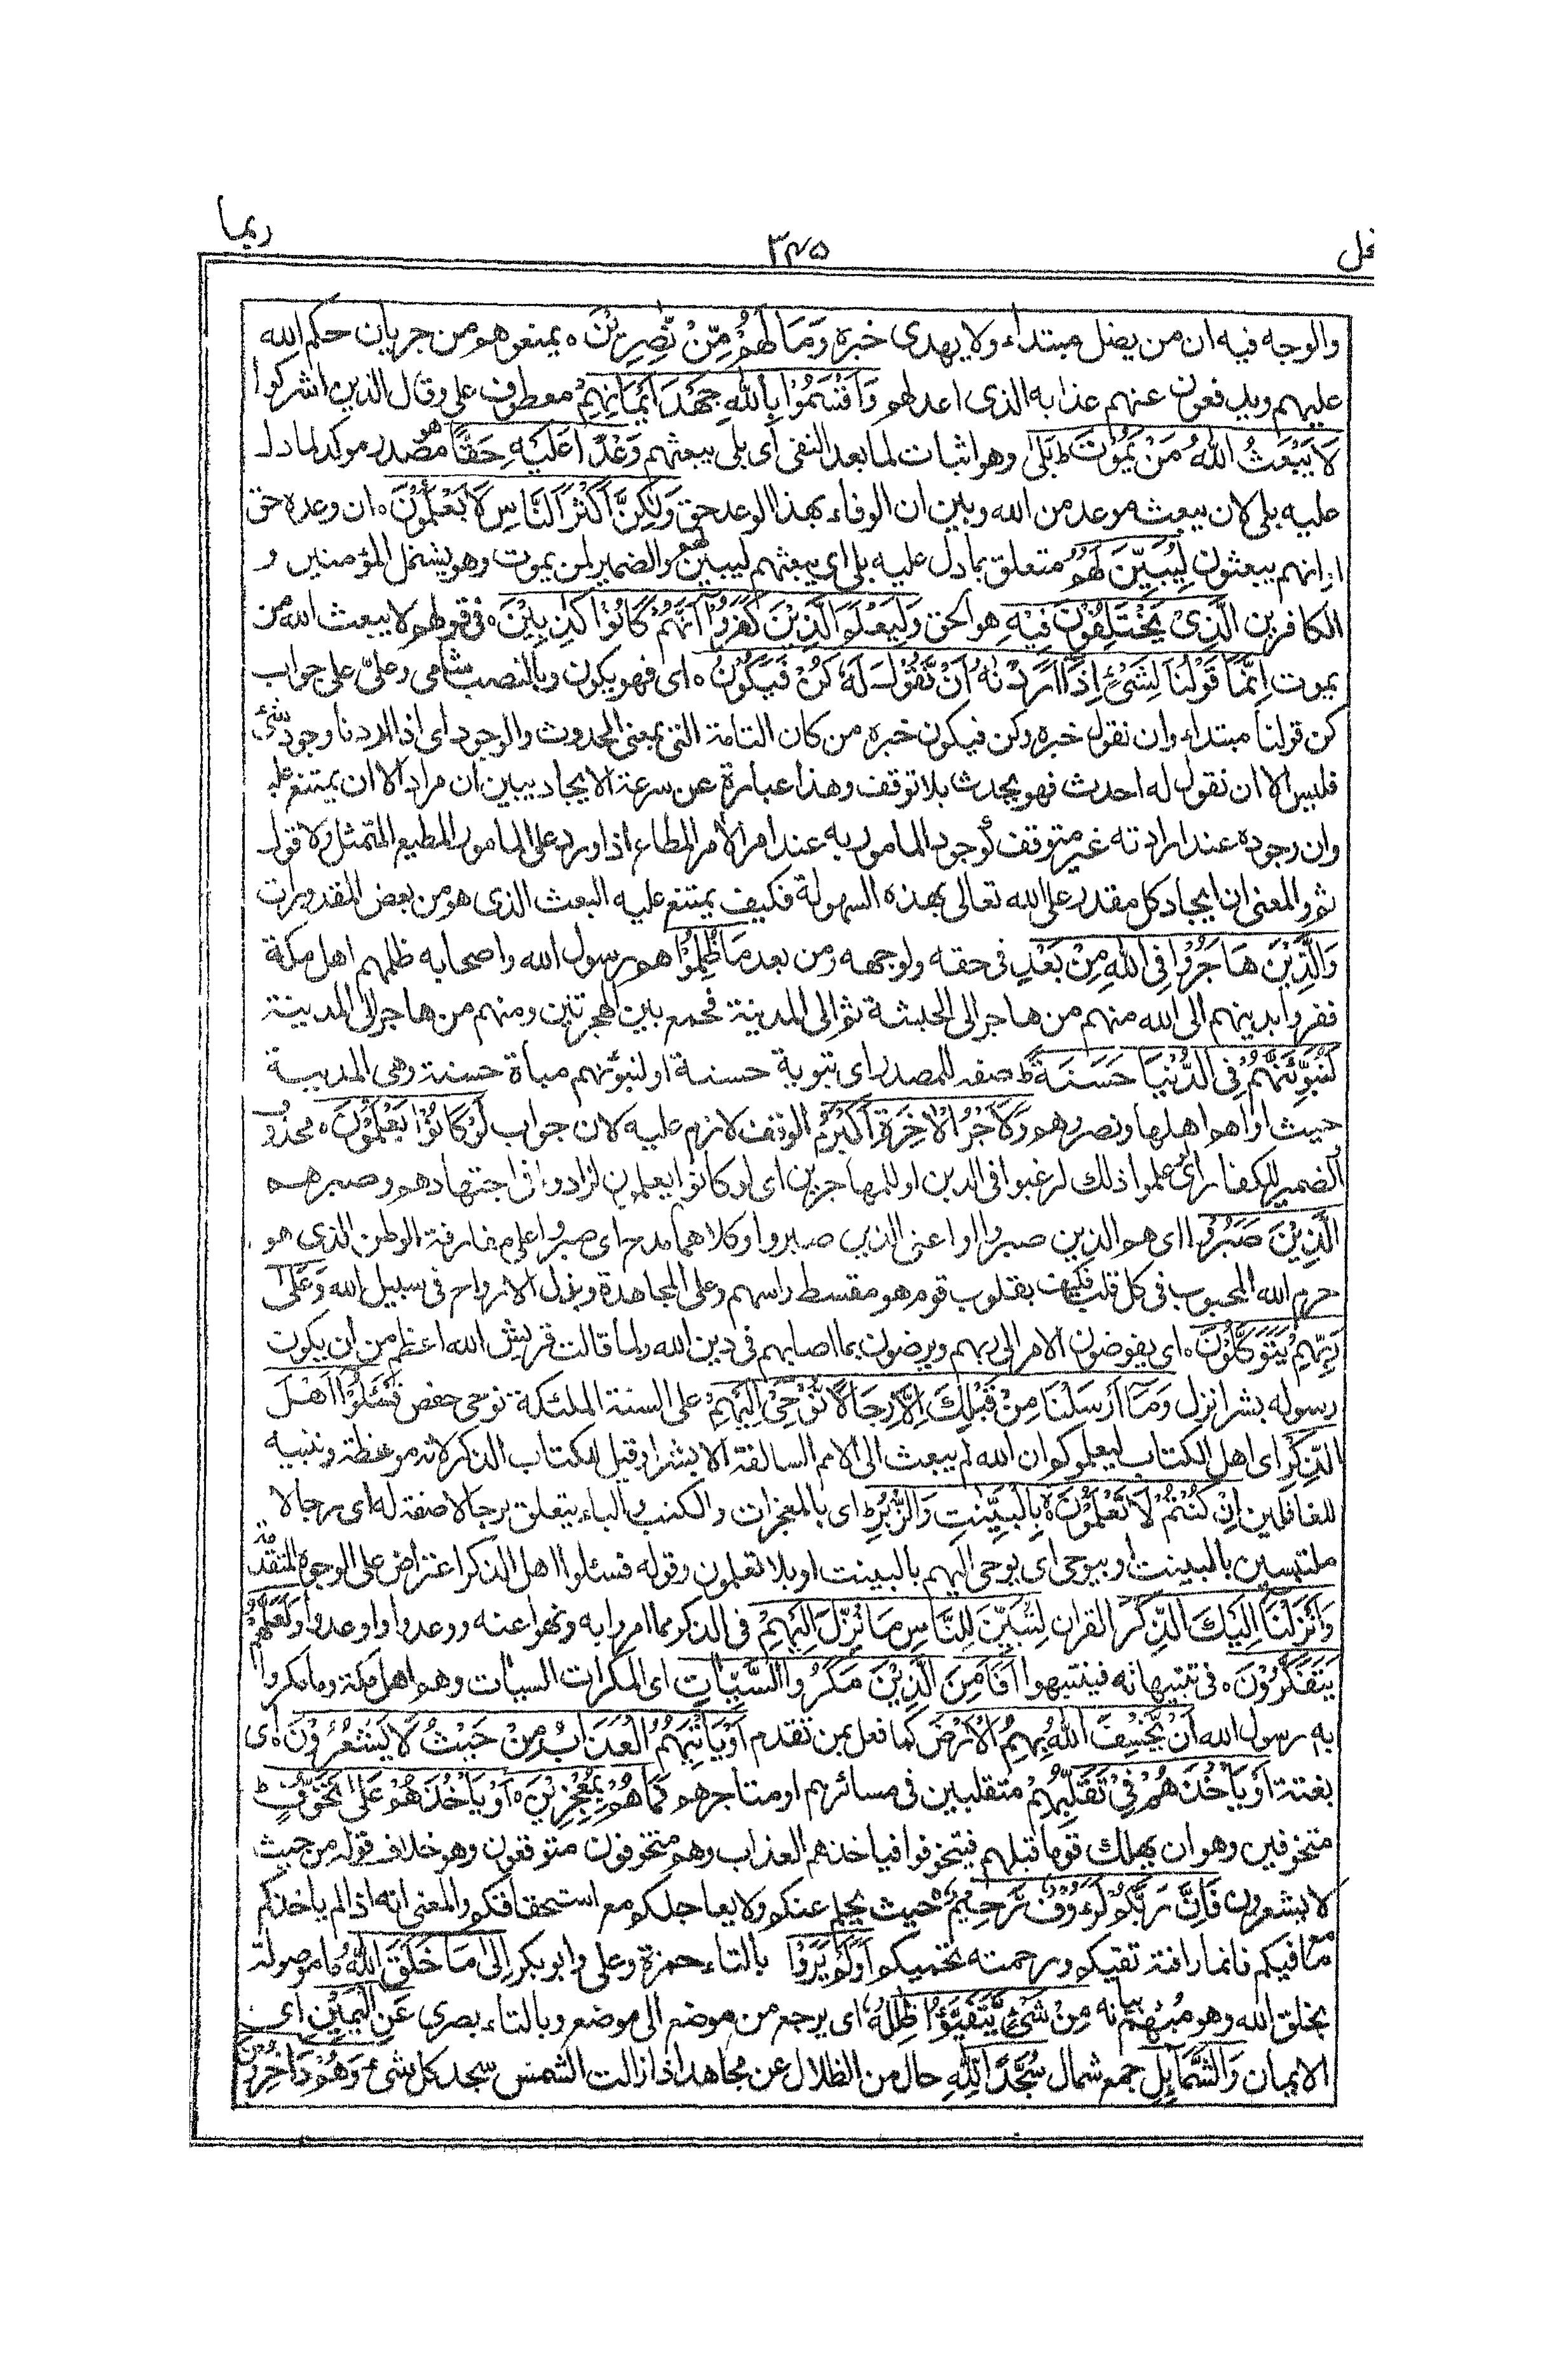 ربما
٣٤٥
والوجه فيه ان من يضل مبتداء ولا يهدى خبره وَمَا لَهُمْ مِّنْ نّٰصِرِيْنَ ه يمنعوهم من جريان حكم الله
عليهم ويدفعون عنهم عذابه الذى اعد لهم وَاَقْسَمُوْا بِاللّٰهِ جَهْدَ اَيْمَانِهِمْ معطوف على وقال الذين اشركوا
لَا يَبْعَثُ اللّٰهُ مَنْ يَّمُوْتُ ط بَلٰى وهو اثبات لما بعد النفى اى بلى يبعثهم وَعْدًا عَلَيْهِ حَقًّا هو مصدر موكد لما دل
عليه بلى لان يبعث موعد من الله وبين ان الوفاء بهذا الوعد حق وَّلٰكِنَّ اَكْثَرَ النَّاسِ لَا يَعْلَمُوْنَ ه ان وعده حق
او انهم يبعثون لِيُبَيِّنَ لَهُمُ متعلق بما دل عليه بلى اى يبعثهم ليبين لهم والضمير لمن يموت وهو يشتمل المؤمنين و
الكافرين الَّذِىْ يَخْتَلِفُوْنَ فِيْهِ هو الحق وَلِيَعْلَمَ الَّذِيْنَ كَفَرُوْا اَنَّهُمْ كَانُوْا كٰذِبِيْنَ ه فى قولهم لا يبعث الله من
يموت اِنَّمَا قَوْلُنَا لِشَىْءٍ اِذَا اَرَدْنٰهُ اَنْ نَّقُوْلَ لَهٗ كُنْ فَيَكُوْنُ ه اى فهو يكون وبالنصب شامى وعلىّ على جواب
كن قولنا مبتداء وان نقول خبره وكن فيكون خبره من كان التامة التى بمعنى الحدوث والوجود اى اذا اردنا وجود شئ
فليس الا ان نقول له احدث فهو يحدث بلا توقف وهذا عبارة عن سرعة الايجاد يبين ان مرادا لا ان يمتنع عليه
وان وجوده عند ارادته غير متوقف كوجود المامور به عند امر الأمر المطاع اذا ورد على المامور المطيع المتمثل ولا قول
ثم والمعنى ان ايجاد كل مقدور على الله تعالى بهذه السهولة فكيف يمتنع عليه البعث الذى هو من بعض المقدورات
وَالَّذِيْنَ هَاجَرُوْا فِى اللّٰهِ مِنْ بَعْدِ فى حقه ولوجهه ومن بعد مَا ظُلِمُوْا هم رسول الله واصحابه ظلمهم اهل مكة
ففروا بدينهم الى الله منهم من هاجر الى الحبشة ثم الى المدينة فجمع بين الهجرتين ومنهم من هاجر الى المدينة
لَنُبَوِّئَنَّهُمْ فِى الدُّنْيَا حَسَنَةً ط صفه للمصدر اى تبوية حسنة او لنبوئهم مباة حسنة وهى المدينة
حيث اواهم اهلها ونصروهم وَلَاَجْرُ الْاٰخِرَةِ اَكْبَرُ م الوقف لازم عليه لان جواب لَوْ كَانُوْا يَعْلَمُوْنَ ه محذوف
الضمير للكفار اى لو علموا ذلك لرغبوا فى الدين او للمهاجرين اى لو كانوا يعلمون لزادوا فى اجتهادهم وصبرهم
الَّذِيْنَ صَبَرُوْا اى هم الذين صبروا او اعنى الذين صبروا وكلاهما مدح اى صبروا على مفارقة الوطن الذى هو
حرم الله المحبوب فى كل قلب فكيف بقلوب قوم هو مقسط راسهم وعلى المجاهدة وبذل الارواح فى سبيل الله وَعَلٰى
رَبِّهِمْ يَتَوَكَّلُوْنَ ه اى يفوضون الامر الى ربهم ويرضون بما اصابهم فى دين الله ولما قالت قريش الله اعظم من ان يكون
رسوله بشرا نزل وَمَا اَرْسَلْنَا مِنْ قَبْلِكَ اِلَّا رِجَالًا نُّوْحِىْ اِلَيْهِمْ على السنة الملئكة نوحى حفص فَسْئَلُوْا اَهْلَ
الذِّكْرِ اى اهل الكتاب ليعلموكم ان الله لم يبعث الى الامم السالفة الا بشرا وقيل للكتاب الذكر لانه موعظة وتنبيه
للغافلين اِنْ كُنْتُمْ لَا تَعْلَمُوْنَ ه بِالْبَيِّنٰتِ وَالزُّبُرِ ط اى بالمعجزات والكتب والباء يتعلق برجالا صفة له اى رجالا
ملتبسين بالبينت او بيوحى اى يوحى اليهم بالبينت او بلا تعلمون وقوله فسئلوا اهل الذكر اعتراض على الوجوه المتقدمة
وَاَنْزَلْنَا اِلَيْكَ الذِّكْرَ القران لِتُبَيِّنَ لِلنَّاسِ مَا نُزِّلَ اِلَيْهِمْ فى الذكر مما امروا به ونهوا عنه ووعدوا واوعدوا وَلَعَلَّهُمْ
يَتَفَكَّرُوْنَ ه فى تنبيهاته فينتبهوا اَفَاَمِنَ الَّذِيْنَ مَكَرُوا السَّيِّاٰتِ اى المكرات السيات وهم اهل مكة وما مكروا
به رسول الله اَنْ يَّخْسِفَ اللّٰهُ بِهِمُ الْاَرْضَ كما فعل بمن تقدم اَوْ يَاْتِيَهُمُ الْعَذَابُ مِنْ حَيْثُ لَا يَشْعُرُوْنَ ه اى
بغتة اَوْ يَاْخُذَهُمْ فِىْ تَقَلُّبِهِمْ متقلبين فى مسائرهم او متاجرهم فَمَا هُمْ بِمُعْجِزِيْنَ ه اَوْ يَاْخُذَهُمْ عَلٰى تَخَوُّفٍ ط
متخوفين وهو ان يهلك قوما قبلهم فيتخوفوا فياخذهم العذاب وهم متخوفون متوقعون وهو خلاف قوله من حيث
لا يشعرون فَاِنَّ رَبَّكُمْ لَرَءُوْفٌ رَّحِيْمٌ ه حيث يحلم عنكم ولا يعاجلكم مع استحقاقكم والمعنى انه اذا لم ياخذكم
مع ما فيكم فانما رافته تقيكم ورحمته تحميكم اَوَلَمْ يَرَوْا بالتاء حمزة وعلى وابو بكر اِلٰى مَا خَلَقَ اللّٰهُ ما موصولة
بخلق الله وهو مبهم بيانه مِنْ شَىْءٍ يَّتَفَيَّؤُا ظِلٰلُهٗ اى يرجع من موضع الى موضع وبالتاء بصرى عَنِ الْيَمِيْنِ اى
الايمان وَالشَّمَآئِلِ جمع شمال سُجَّدًا لِّلّٰهِ حال من الظلال عن مجاهد اذا زالت الشمس سجد كل شىء وَهُمْ دَاخِرُوْنَ